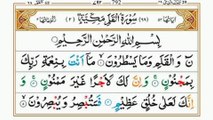 بِسْمِ اللّٰهِ الرَّحْمٰنِ الرَّحِيْمِ
نٓ وَالْقَلَمِ وَمَا يَسْطُرُوْنَ ۙ مَآ اَنْتَ بِنِعْمَةِ رَبِّكَ
بِمَجْنُوْنٍ ۚ وَاِنَّ لَكَ لَاَجْرًا غَيْرَ مَمْنُوْنٍ ۚ وَ
اِنَّكَ لَعَلٰى خُلُقٍ عَظِيْمٍ فَسَتُبْصِرُ وَيُبْصِرُوْنَ ۙ